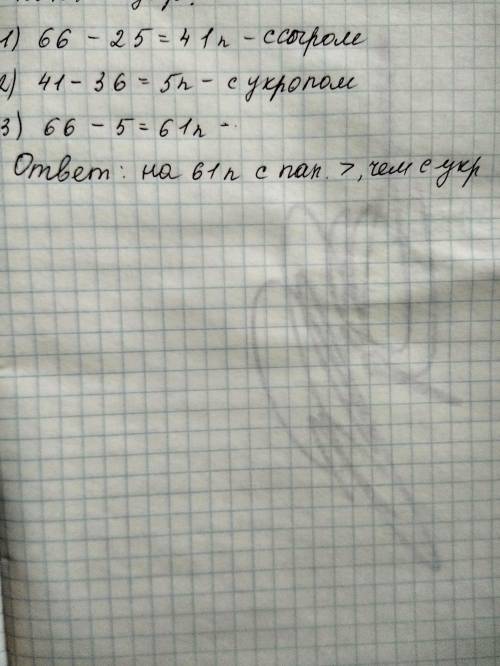 1) 66 - 25 = 41п - с сыром
2) 41 - 36 = 5п - с укропом
3) 66 - 5 = 61п -
Ответ: на 61п с пап. >, чем с укр